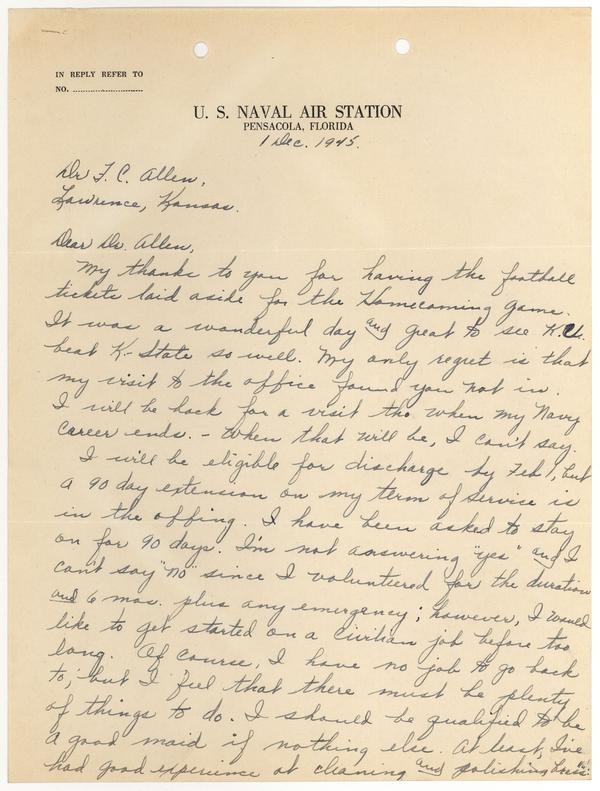 IN REPLY REFER TO
NO. ........................
U. S. NAVAL AIR STATION
PENSACOLA, FLORIDA
1 Dec. 1945.
Dr F. C. Allen,
Lawrence, Kansas.
Dear Dr. Allen,
My thanks to you for having the football
tickets laid aside for the Homecoming game.
It was a wonderful day and great to see K.U.
beat K-State so well. My only regret is that
my visit to the office found you not in.
I will be back for a visit tho when my Navy
career ends. – When that will be, I can't say.
I will be eligible for discharge by Feb 1, but
a 90 day extension on my term of service is
in the offing. I have been asked to stay
on for 90 days. I'm not answering "yes" and I
can't say "no" since I volunteered for the duration
and 6 mos. plus any emergency; however, I would
like to get started on a civilian job before too
long. Of course, I have no job to go back
to, but I feel that there must be plenty
of things to do. I should be qualified to be
a good maid if nothing else. At least, I've
had good experience at cleaning and polishing brass.